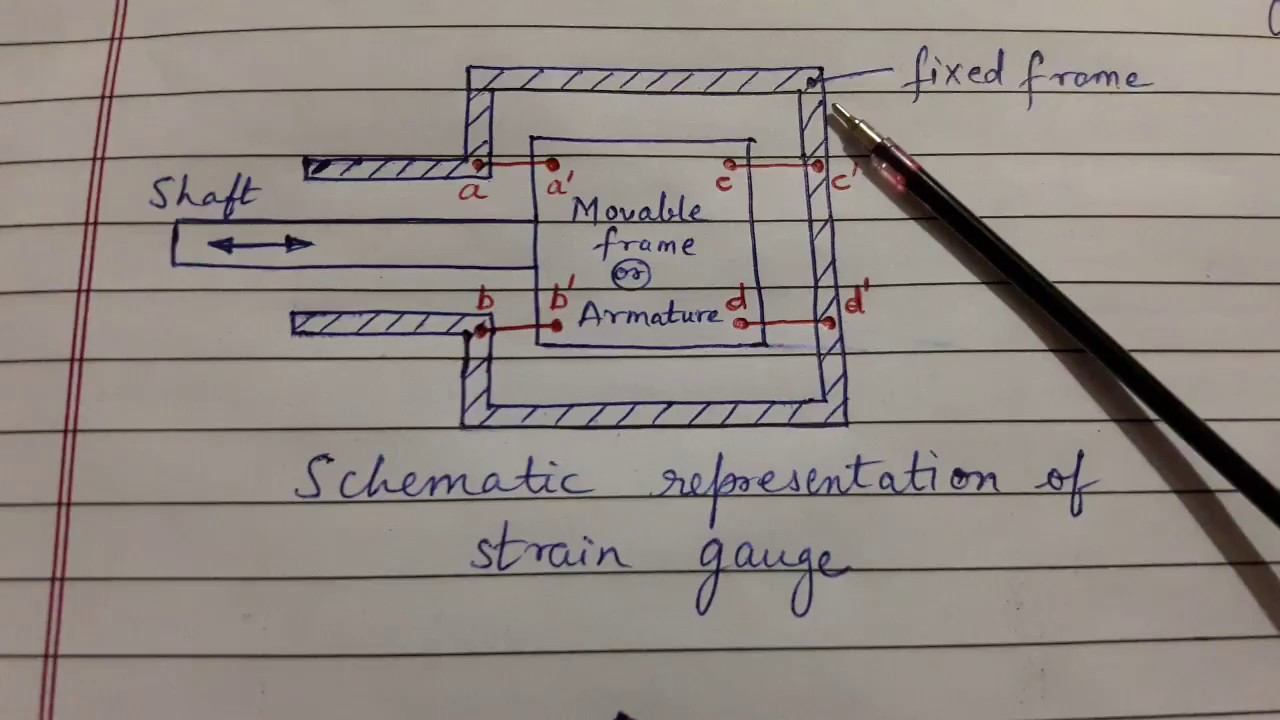 fixed frame
Shaft
a a' c c'
Movable
frame
or
b b' d d'
Armature
Schematic representation of
strain gauge